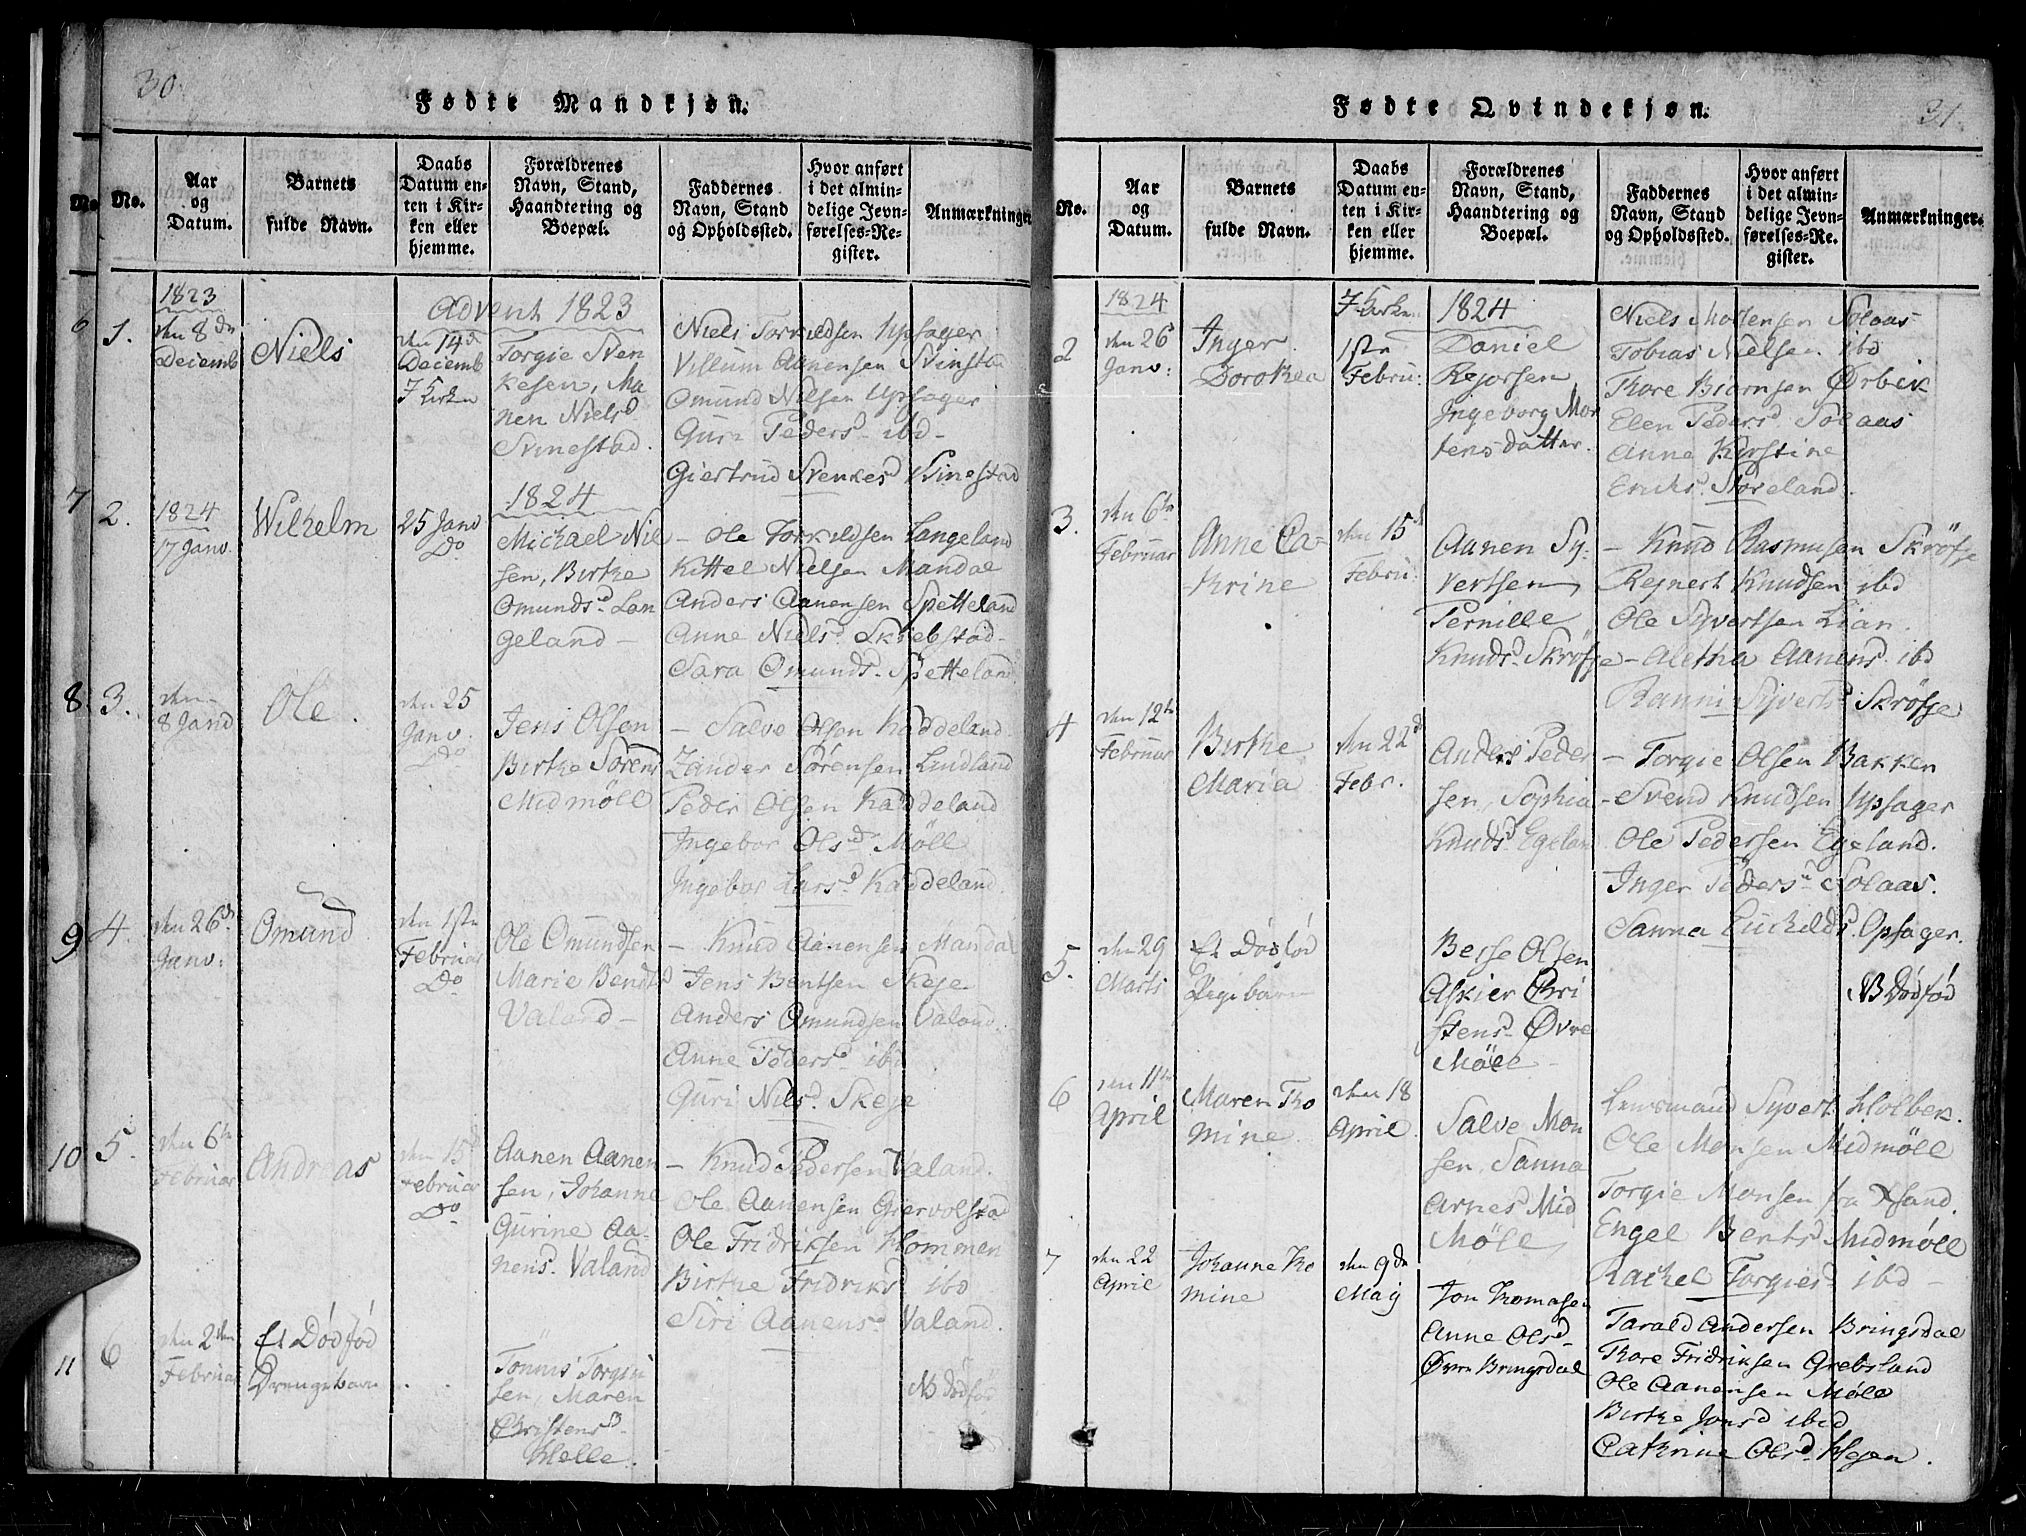 30
Fødte Mandkjøn.
No.
No.
Aar og Datum.
Barnets fulde Navn.
Daabs Datum enten i Kirken eller hjemme.
Forældrenes Navn, Stand, Haandtering og Boepæl.
Faddernes Navn, Stand og Opholdssted.
Hvor anført i det almindelige Jevnførelses-Register.
Anmærkninger
Advent 1823
6
1.
1823
den 8de
Decemb
Niels
den 14de
Decemb
J Kirken
Torgie Sven
kesen, Ma
ren Nielsd
Svinestad.
Niels Torkildsen Upsager
Villum Aanensen Svinsta
Omund Nilsen Upsager
Guri Pedersd ibd
Giertrud Svenkesd Svinestad
7
2.
1824
17 Janv.
Wilhelm
25 Janv
Do
1824
Michael Niel
sen, Birthe
Omundsd Lan
geland
Ole Torkildsen Langeland
Kittel Nielsen Mandal
Anders Aanensen Spetteland
Anne Nielsd Skiebstad
Sara Omundsd. Spetteland
8.
3.
den
8 Janv
Ole.
den 25
Janv.
Do
Jens Olsen
Birthe Sørens
Midmøll
Salve Olsen Kaddeland
Zander Sørensen Lindland
Peder Olsen Kaddeland
Ingebor Olsd Møll
Ingebor Larsd Kaddeland.
9
4.
den 26de
Janv:
Omund
den 1ste
Februar
Do
Ole Omundsen
Marie Bendtsd
Valand
Knud Aanensen Mandal
Jens Bentsen Skeje
Anders Omundsen Valand.
Anne Pedersd ibd
Guri Nilsd. Skeje
10
5.
den 6te
Februar
Andreas
den 15de
Februar
Do
Aanen Aanen
sen, Johanne
Gurine Aa-
nensd. Valand
Knud Pedersen Valand.
Ole Aanensen Giervolstad
Ole Fridriksen Kommen
Birthe Fridriksd ibd
Siri Aanensd Valand.
11
6
den 2den
Februar
Et Dødfød
Drengebarn
Tønnis Torgiu
sen, Maren
Christensd
Helle.
NB Dødfød
31.
Fødte Qvindekjøn.
No.
Aar og Datum.
Barnets fulde Navn.
Daabs Datum enten i Kirken eller hjemme.
Forældrenes Navn, Stand, Haandtering og Boepæl.
Faddernes Navn, Stand og Opholdssted.
Hvor anført i det almindelige Jevnførelses-Register.
Anmærkninger.
2
1824
den 26d
Janv:
Inger
Dorothea
J Kirken
1ste
Febru:
1824
Daniel
Rejorsen
Ingeborg Mor
tensdatter.
Niels Mortensen Solaas
Tobias Nielsen ibd
Thore Biørnsen Ørbek
Elen Pedersd Solaas
Anne Kirstine
Eriksd. Støreland.
3.
den 6te
Februar
Anne Ca-
thrine
den 15de
Febru:
Aanen Sy-
vertsen,
Pernille
Knudsd. Skrøfje
Knud Rasmusen Skrøfje
Rejnert Knudsen ibd
Ole Syvertsen Lian.
Aletha Aanensd. ibd
Ranni Syvertsd Skrøfje
4
den 12te
Februar
Birthe
Maria
den 22de
Febr.
Anders Peder
sen, Sophia
Knudsd Egeland
Torgie Olsen Bakken
Svend Knudsen Upsager
Ole Pedersen Egeland.
Inger Pedersd Solaas.
Sanna Euchildsd. Opsager.
5.
den 29
Marts
Et Dødfød
Pigebarn
Berse Olsen
Askier Chri
stensd. Øvre
Møll
NB Dødfød
6
den 11te
April
Maren Tho
mine
den 18
April
Salve Mon
sen, Sanna
Arnesd Mid
Møll
Lensmand Syvert Holbek.
Ole Monsen Midmøll
Torgie Monsen fra Xsand.
Engel Bentsd Midmøll
Rachel Torgiesd ibd
7
den 22
April
Johanne Tho
mine
den 9de
Maij
Jon Thomasen
Anne Olsd
Øvre Bringsdal
Tarald Andersen Bringsdal
Thore Fridriksen Grebsland
Ole Aanensen Møll
Birthe Jonsd ibid
Cathrine Olsd. Hejen.